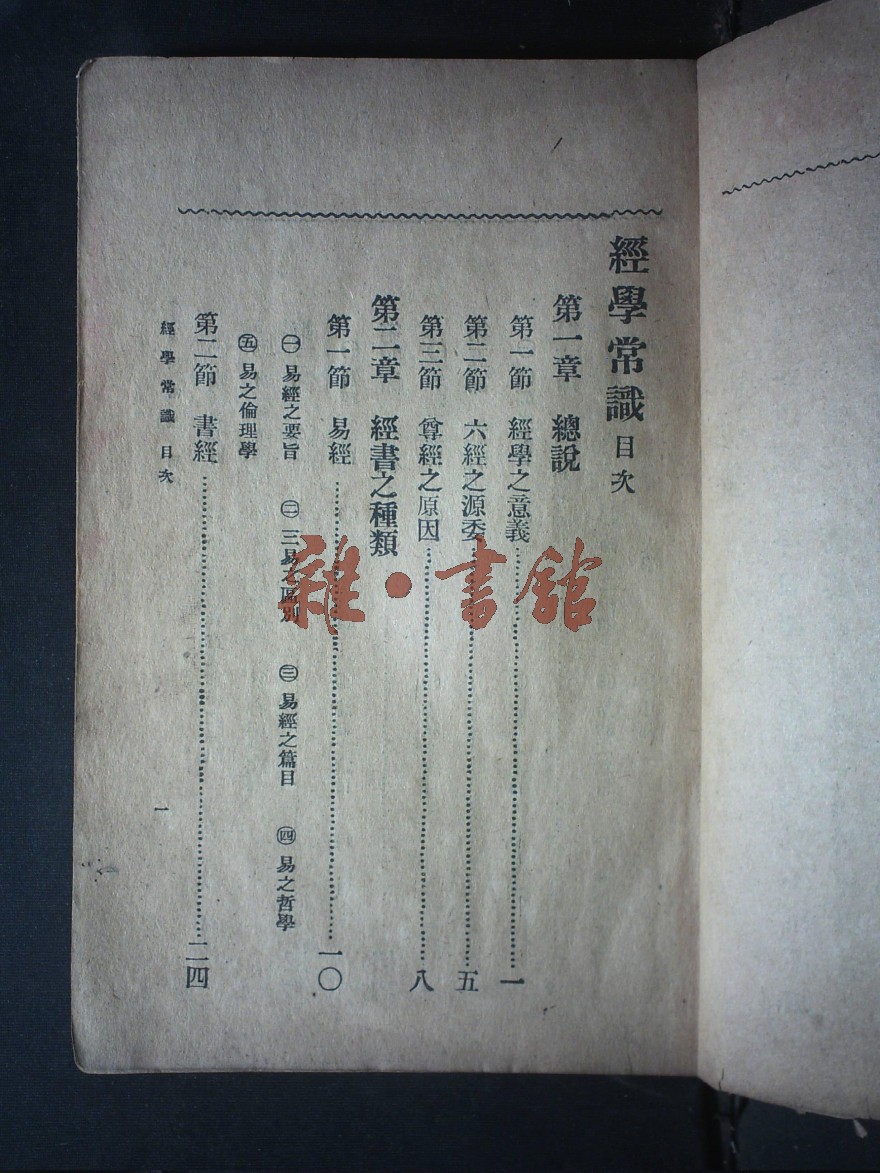 經學常識 目次
第一章 總說
第一節 經學之意義……一
第二節 六經之源委……五
第三節 尊經之原因……八
第二章 經書之種類
第一節 易經……一〇
㊀ 易經之要旨 ㊁ 三易之區別 ㊂ 易經之篇目 ㊃ 易之哲學
㊄ 易之倫理學
第二節 書經……二四
經學常識 目次 一
雜·書館